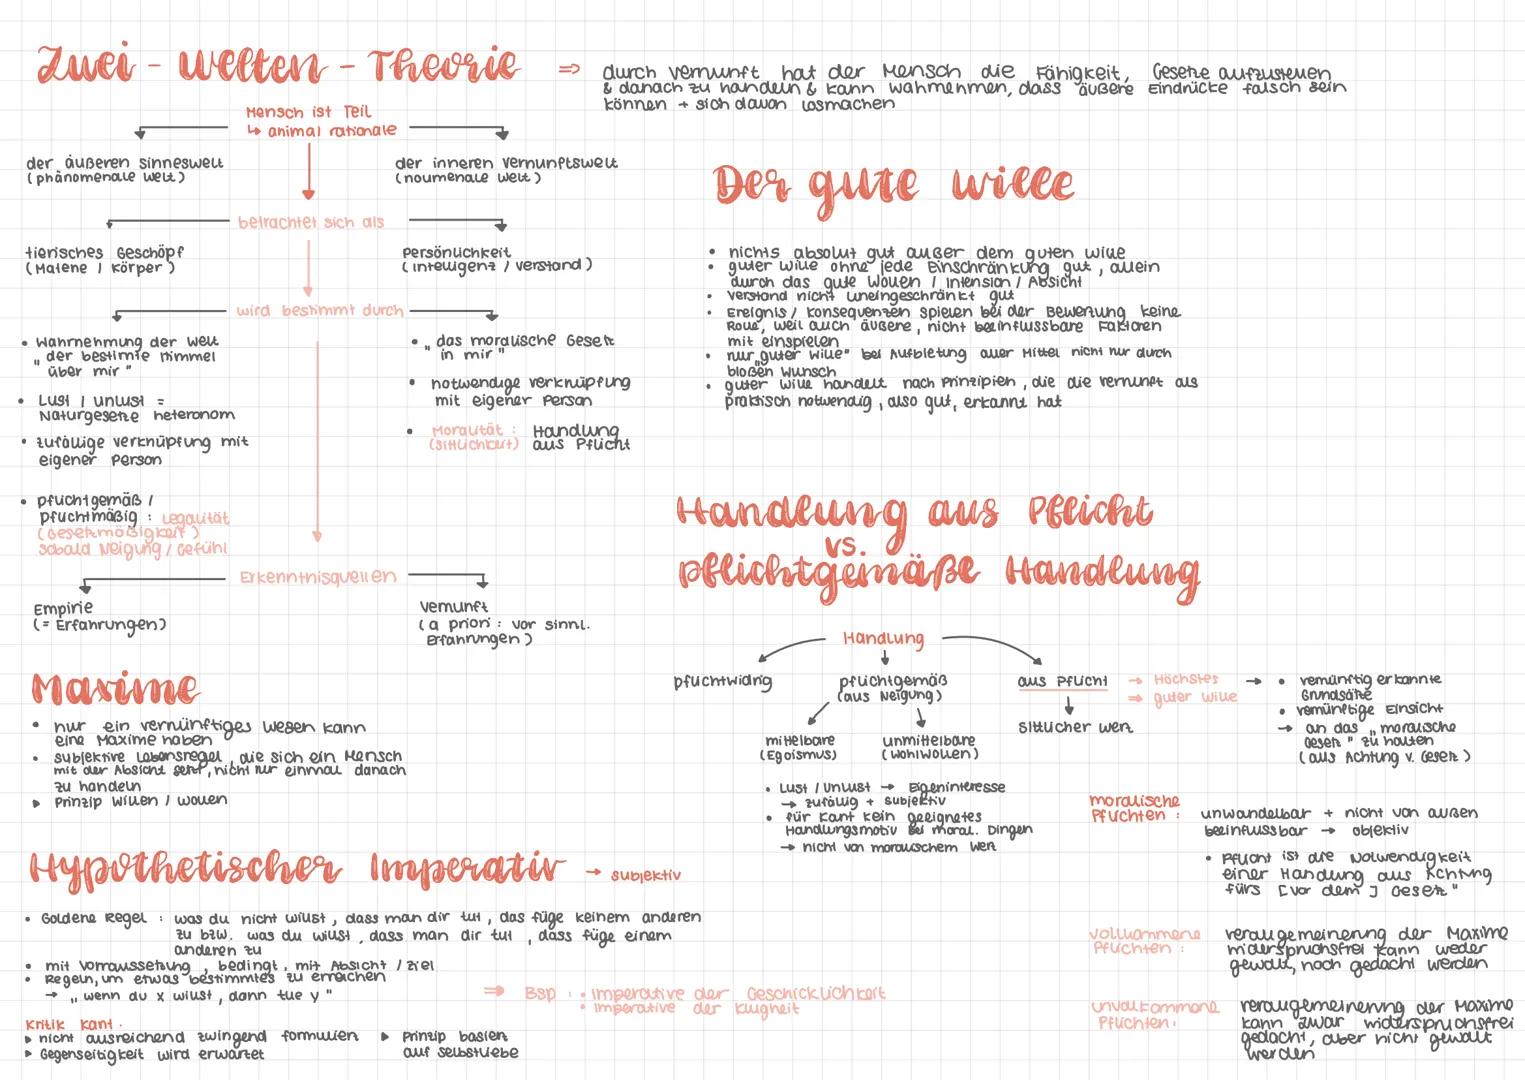 Zwei - Welten - Theorie
⇒ durch Vernunft hat der Mensch die Fähigkeit, Gesetze aufzustellen
& danach zu handeln & kann wahrnehmen, dass äußere Eindrücke falsch sein
können + sich davon losmachen
Mensch ist Teil
↳ animal rationale
der äußeren Sinneswelt
(phänomenale Welt)
der inneren Vernunftswelt
(noumenale Welt)
betrachtet sich als
tierisches Geschöpf
(Materie / Körper)
Persönlichkeit
(Intelligenz / Verstand)
wird bestimmt durch
• Wahrnehmung der Welt
„ der bestirnte Himmel
über mir "
• Lust / Unlust =
Naturgesetze heteronom
• zufällige Verknüpfung mit
eigener Person
• pflichtgemäß /
pflichtmäßig : Legalität
(Gesetzmäßigkeit)
sobald Neigung / Gefühl
• „ das moralische Gesetz
in mir "
• notwendige Verknüpfung
mit eigener Person
• Moralität : Handlung
(Sittlichkeit) aus Pflicht
Erkenntnisquellen
Empirie
(= Erfahrungen)
Vernunft
(a priori : vor sinnl.
Erfahrungen)
Maxime
• nur ein vernünftiges Wesen kann
eine Maxime haben
• subjektive Lebensregel, die sich ein Mensch
mit der Absicht setzt, nicht nur einmal danach
zu handeln
▸ Prinzip Willen / Wollen
Hypothetischer Imperativ → subjektiv
• Goldene Regel : was du nicht willst, dass man dir tut, das füge keinem anderen
zu bzw. was du willst, dass man dir tut, dass füge einem
anderen zu
• mit Vorraussetzung, bedingt, mit Absicht / Ziel
• Regeln, um etwas bestimmtes zu erreichen
→ „ wenn du x willst, dann tue y "
⇒ Bsp : • Imperative der Geschicklichkeit
• Imperative der Klugheit
Kritik Kant :
▸ nicht ausreichend zwingend formulien
▸ Gegenseitigkeit wird erwartet
▸ Prinzip basiert
auf Selbstliebe
Der gute Wille
• nichts absolut gut außer dem guten Wille
• guter Wille ohne jede Einschränkung gut, allein
durch das gute Wollen / Intension / Absicht
• Verstand nicht uneingeschränkt gut
• Ereignis / Konsequenzen spielen bei der Bewertung keine
Rolle, weil auch äußere, nicht beeinflussbare Faktoren
mit einspielen
• nur „guter Wille" bei Aufbietung aller Mittel nicht nur durch
bloßen Wunsch
• guter Wille handelt nach Prinzipien, die die Vernunft als
praktisch notwendig, also gut, erkannt hat
Handlung aus Pflicht
vs.
pflichtgemäße Handlung
Handlung
pflichtwidrig
pflichtgemäß
(aus Neigung)
aus Pflicht → Höchstes →
⇒ guter Wille
sittlicher Wert
• vernünftig erkannte
Grundsätze
• vernünftige Einsicht
→ an das „moralische
Gesetz" zu halten
(aus Achtung v. Gesetz)
mittelbare
(Egoismus)
unmittelbare
(Wohlwollen)
• Lust / Unlust → Eigeninteresse
→ zufällig + subjektiv
• für Kant kein geeignetes
Handlungsmotiv bei moral. Dingen
→ nicht von moralischem Wert
moralische
Pflichten :
unwandelbar + nicht von außen
beeinflussbar → objektiv
• Pflicht ist die Notwendigkeit
einer Handlung aus Achtung
fürs [vor dem] Gesetz"
vollkommene
Pflichten :
verallgemeinerung der Maxime
widerspruchsfrei kann weder
gewollt, noch gedacht werden
unvollkommene
Pflichten :
verallgemeinerung der Maxime
kann zwar widerspruchsfrei
gedacht, aber nicht gewollt
werden